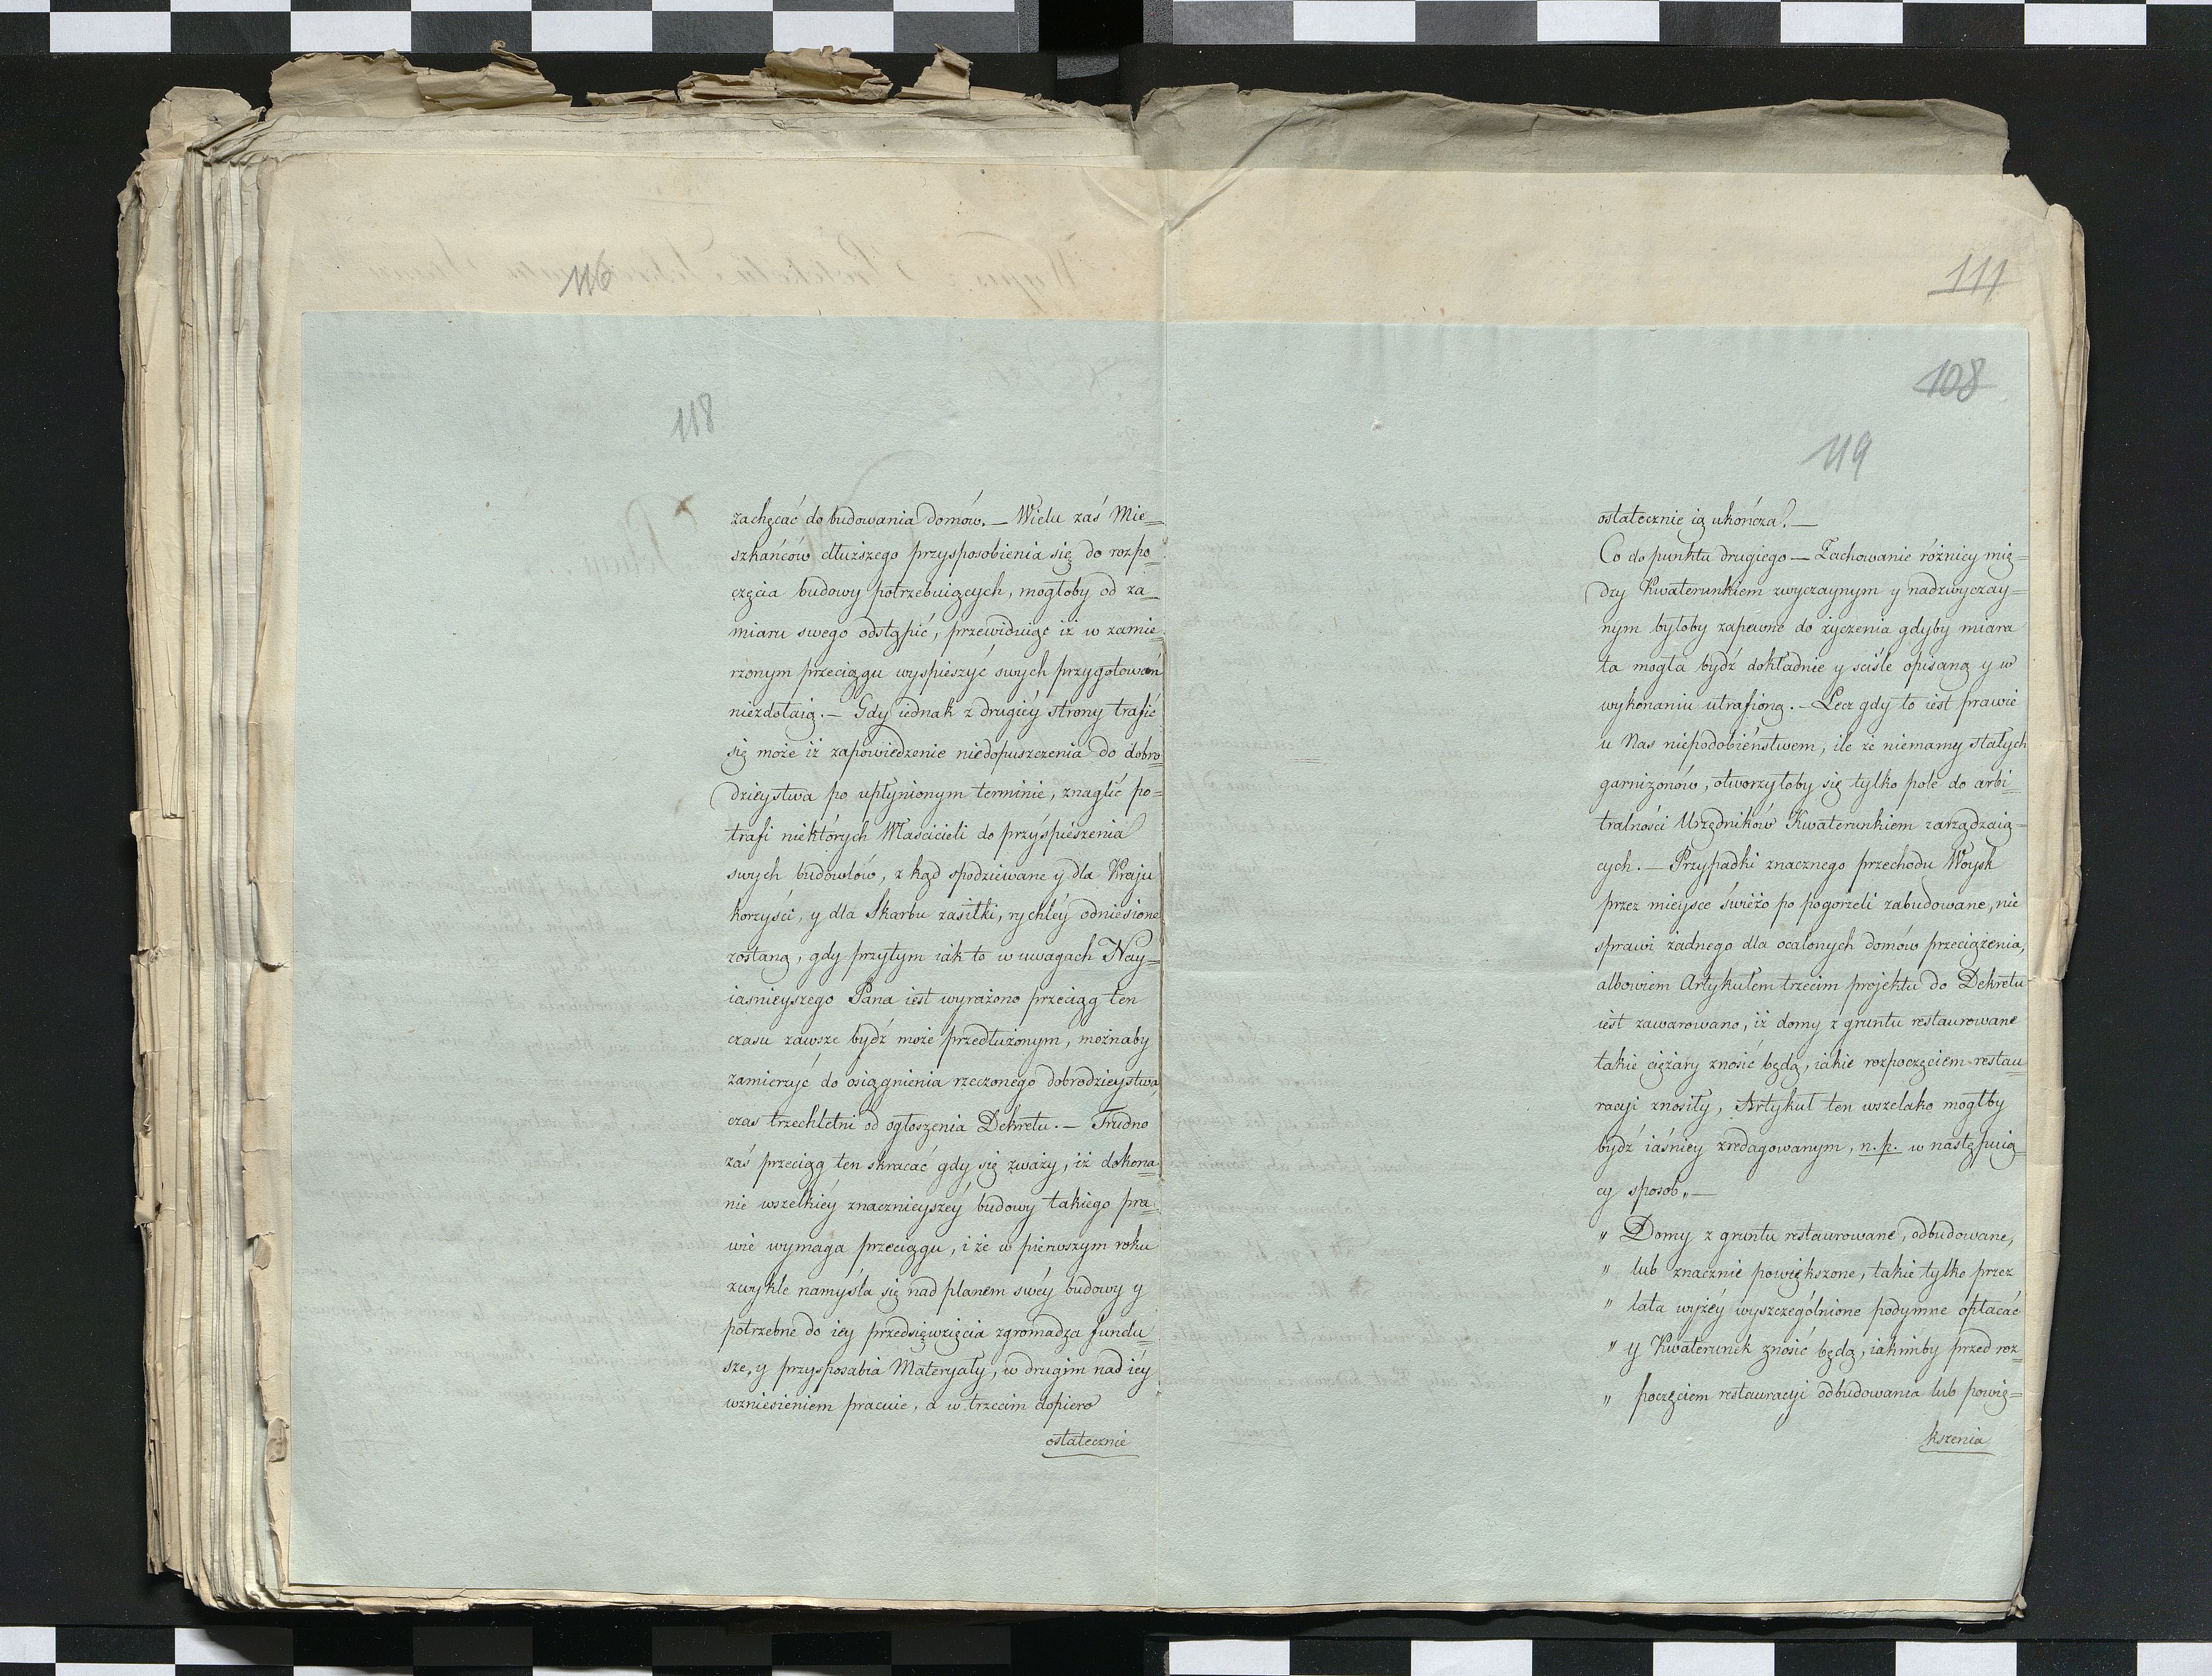 116
118
zachęcać do budowania domów. — Wielu zaś Mie=
szkańców dłuższego przysposobienia się do rozpo=
częcia budowy potrzebuiących, mogłoby od za=
miaru swego odstąpić, przewiduiąc iż w zamie=
rzonym przeciągu wyspieszyć swych przygotowań
niezdołaią. — Gdy iednak z drugiéy strony trafić
się może iż zapowiedzenie niedopuszczenia do dobro=
dzieystwa po upłynionym terminie, znaglić po=
trafi niektórych Włascicieli do przyśpieszenia
swych budowlów, z kąd spodziewane y dla Kraju
korzyści, y dla Skarbu zasiłki, rychléy odniesione
zostaną, gdy przytym iak to w uwagach Nay=
iaśnieyszego Pana iest wyrażono przeciąg ten
czasu zawsze bydź może przedłużonym, możnaby
zamierzyć do osiągnienia rzeczonego dobrodzieystwa,
czas trzechletni od ogłoszenia Dekretu. — Trudno
zaś przeciąg ten skracać gdy się zważy, iż dokona=
nie wszelkiéy znacznieyszéy budowy takiego pra=
wie wymaga przeciągu, i że w pierwszym roku
zwykle namyśla się nad planem swéy budowy y
potrzebne do iéy przedsięwzięcia zgromadza fundu=
sze, y przysposabia Materyały, w drugim nad iéy
wzniesieniem pracuie, a w trzecim dopiero
ostatecznie
111
108
119
ostatecznie ią ukończa. —
Co do punktu drugiego — Zachowanie różnicy mię=
dzy Kwaterunkiem zwyczaynym y nadzwyczay=
nym byłoby zapewne do życzenia gdyby miara
ta mogła bydź dokładnie y sciśle opisaną y w
wykonaniu utrafioną. — Lecz gdy to iest prawie
u Nas niepodobieństwem, ile że niemamy stałych
garnizonów, otworzyłoby się tylko pole do arbi=
tralności Urzędników Kwaterunkiem zarządzaią=
cych. — Przypadki znacznego przechodu Woysk
przez mieysce świeżo po pogorzeli zabudowane, nie
sprawi żadnego dla ocalonych domów przeciążenia,
albowiem Artykułem trzecim projektu do Dekretu
iest zawarowano, iż domy z gruntu restaurowane
takie ciężary znosić będą, iakie rozpoczęciem restau=
racyi znosiły, Artykuł ten wszelako mogłby
bydź iaśniey zredagowanym, n. p. w następuią=
cy sposob „ —
„ Domy z gruntu restaurowane, odbudowane,
„ lub znacznie powiększone, takie tylko przez
„ lata wyżéy wyszczególnione podymne opłacać
„ y Kwaterunek znosić będą, iakiniby przed roz=
„ poczęciem restauracyi odbudowania lub powię=
kszenia